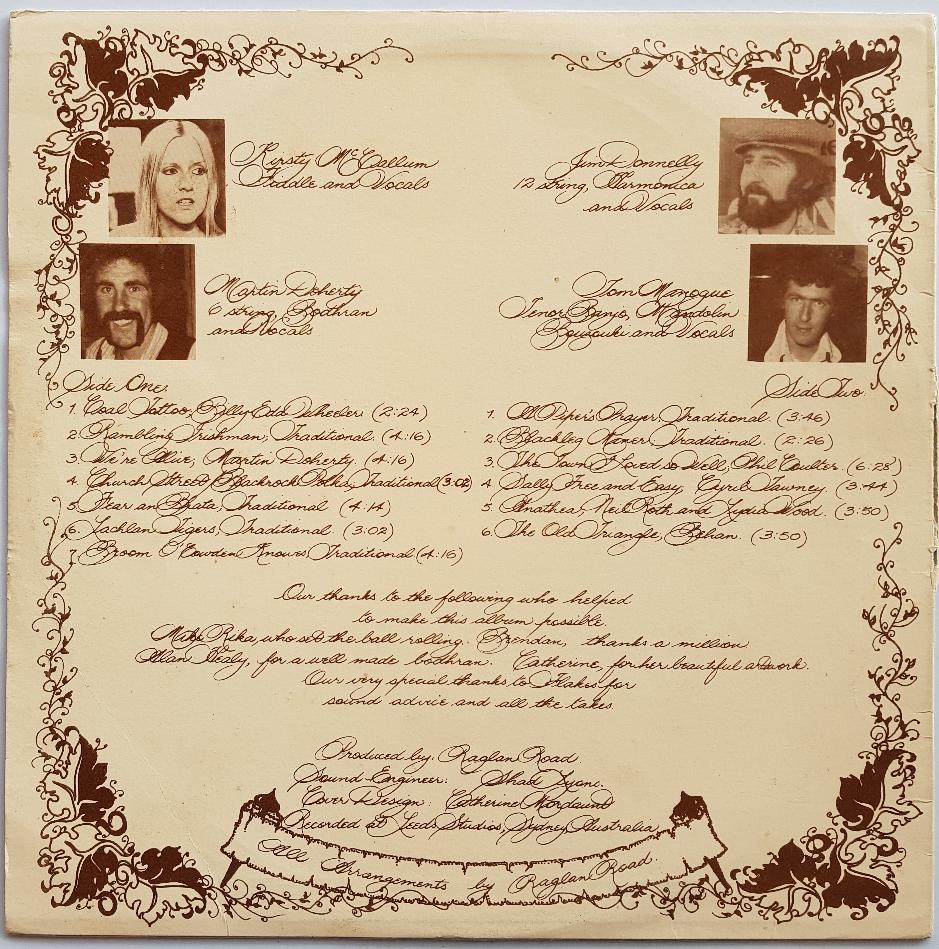 Kirsty McCallum
Fiddle and Vocals
Jim Donnelly
12 string, Harmonica
and Vocals
Martin Doherty
6 string, Bodhran
and Vocals
Tom Manogue
Tenor Banjo, Mandolin
Bouzouki and Vocals
Side One.
1. Coal Tattoo, Billy Edd Wheeler (2:24)
2. Rambling Irishman, Traditional. (4:16)
3. We're Alive, Martin Doherty. (4:16)
4. Church Street Blackrock Polka, Traditional (3:02)
5. Fear an Bhata, Traditional. (4:14)
6. Lachlan Tigers, Traditional. (3:02)
7. Broom O' Cowden Knows Traditional (4:16)
Side Two.
1. Piper's Prayer, Traditional. (3:46)
2. Blackleg Miner Traditional. (2:26)
3. The Town I Loved so Well, Phil Coulter. (6:28)
4. Sally Free and Easy, Cyril Tawney. (3:44)
5. Anathea, Neil Roth and Lydia Wood. (3:50)
6. The Old Triangle, Behan. (3:50)
Our thanks to the following who helped
to make this album possible.
Mike Rika, who set the ball rolling. Brendan, thanks a million
Alan Healy, for a well made bodhran. Catherine, for her beautiful artwork.
Our very special thanks to Flakes for
sound advice and all the takes.
Produced by: Raglan Road.
Sound Engineer:
Cover Design: Catherine Mordaunt
Recorded at Leeds Studios, Sydney Australia
All Arrangements by Raglan Road.